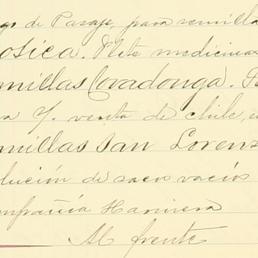 go de Pasaje, para semilla
osica. Flete medicinas
millas Covadonga.
a y. venta de chile,
millas San Lorenz
lución de sacos vacíos
ompañía Harinera
Al frente